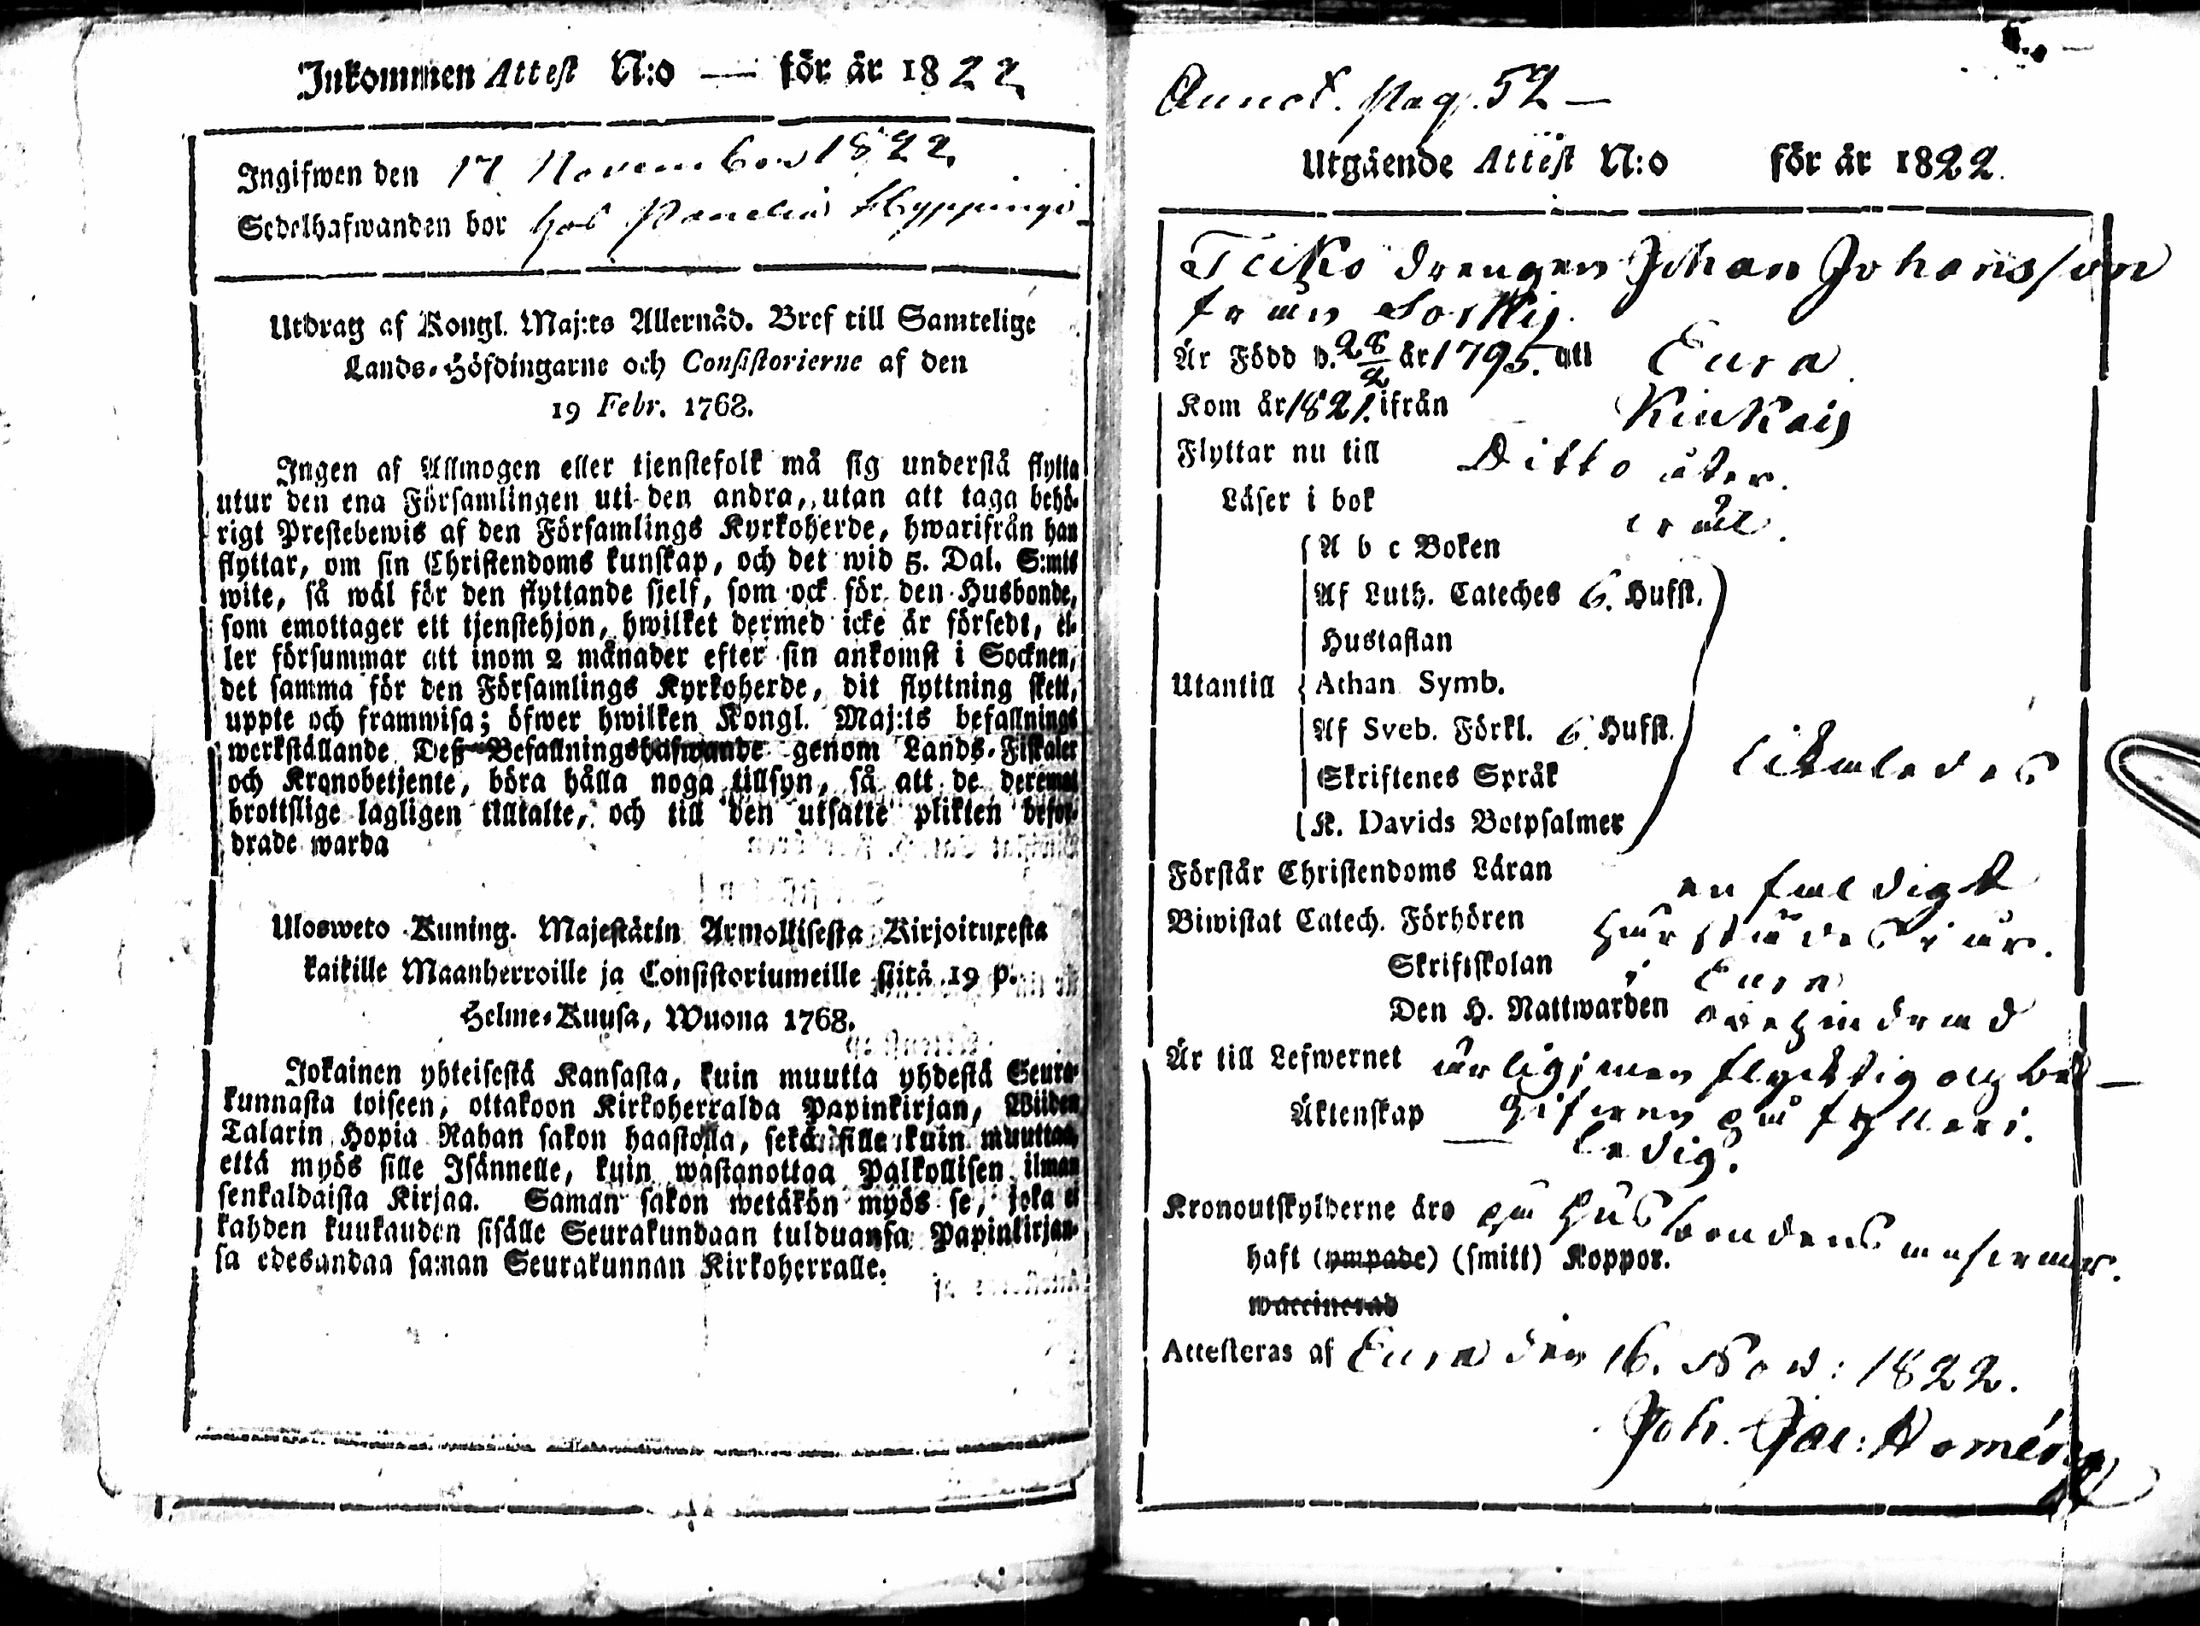 Inkommen Attest N:o — för år 1822
Ingifwen den 17 November 1822
Sedelhafwanden bor hos
Utdrag af Kongl. Maj:ts Allernåd. Bref till Samtelige
Lands-Höfdingarne och Consistorierne af den
19 Febr. 1768.
Ingen af Allmogen eller tjenstefolk må sig understå flytta
utur den ena Församlingen uti den andra, utan att taga behö-
rigt Prestebewis af den Församlings Kyrkoherde, hwarifrån han
flyttar, om sin Christendoms kunskap, och det wid 5. Dal. S:mts
wite, så wäl för den flyttande sjelf, som ock för den Husbonde,
som emottager ett tjenstehjon, hwilket dermed icke är försedt, el-
ler försummar att inom 2 månader efter sin ankomst i Socknen,
det samma för den Församlings Kyrkoherde, dit flyttning skett,
uppte och framwisa; öfwer hwilken Kongl. Maj:ts befallnings
werkställande Deß Befallningshafwande genom Lands-Fiskaler
och Kronobetjente, böra hålla noga tillsyn, så att de deremot
brottslige lagligen tilltalte, och till den utsatte plikten befor-
drade warda
Ulosweto Kuning. Majestätin Armollisesta Kirjoituxesta
kaikille Maanherroille ja Consistoriumeille siitä 19 p.
Helme-Kuusa, Wuona 1768.
Jokainen yhteisestä Kansasta, kuin muutta yhdestä Seura-
kunnasta toiseen, ottakoon Kirkoherralda Papinkirjan, Wiiden
Talarin Hopia Rahan sakon haastolla, sekä sille kuin muuttaa,
että myös sille Isännelle, kuin wastanottaa Palkollisen ilman
senkaldaista Kirjaa. Saman sakon wetäkön myös se, joka ei
kahden kuukauden sisälle Seurakundaan tulduansa Papinkirjan-
sa edesandaa saman Seurakunnan Kirkoherralle.
Annot. Pag. 52 —
Utgående Attest N:o för år 1822.
drengen Johan Johansson
från
Är Född d. 28/2 år 1795. uti Eura
Kom år 1821. ifrån Kiukais
Flyttar nu till Ditto åter.
Läser i bok
A b c Boken
Af Luth. Cateches 6. Hufst.
Hustaflan
Utantill Athan Symb.
Af Sveb. Förkl. 6 Hufst.
Skriftenes Språk likaledes
K. Davids Botpsalmer
Förstår Christendoms Läran enfaldigt
Biwistat Catech. Förhören härstädes i år.
Skriftskolan i Eura
Den H. Nattwarden
Är till Lefwernet ärlig, men flycktig och be-
Äktenskap gifwen på fylleri.
ledig.
Kronoutskylderne äro på Husbondens
haft (ympade) (smitt) Koppor.
waccinerad
Attesteras af Eura den 16. Nov: 1822.
Joh. Jac: Homén